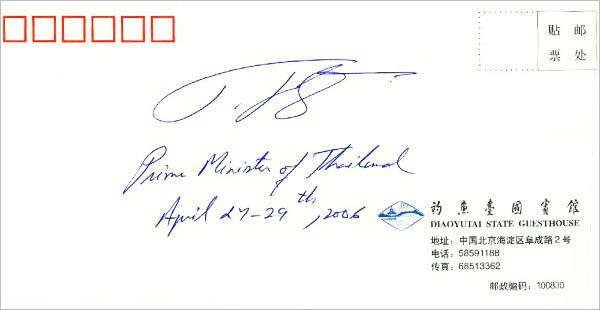 贴 邮
票 处
Prime Minister of Thailand
April 27-29th, 2006
釣魚臺國賓館
DIAOYUTAI STATE GUESTHOUSE
地址:中国北京海淀区阜成路2号
电话:58591188
传真:68513362
邮政编码:100830